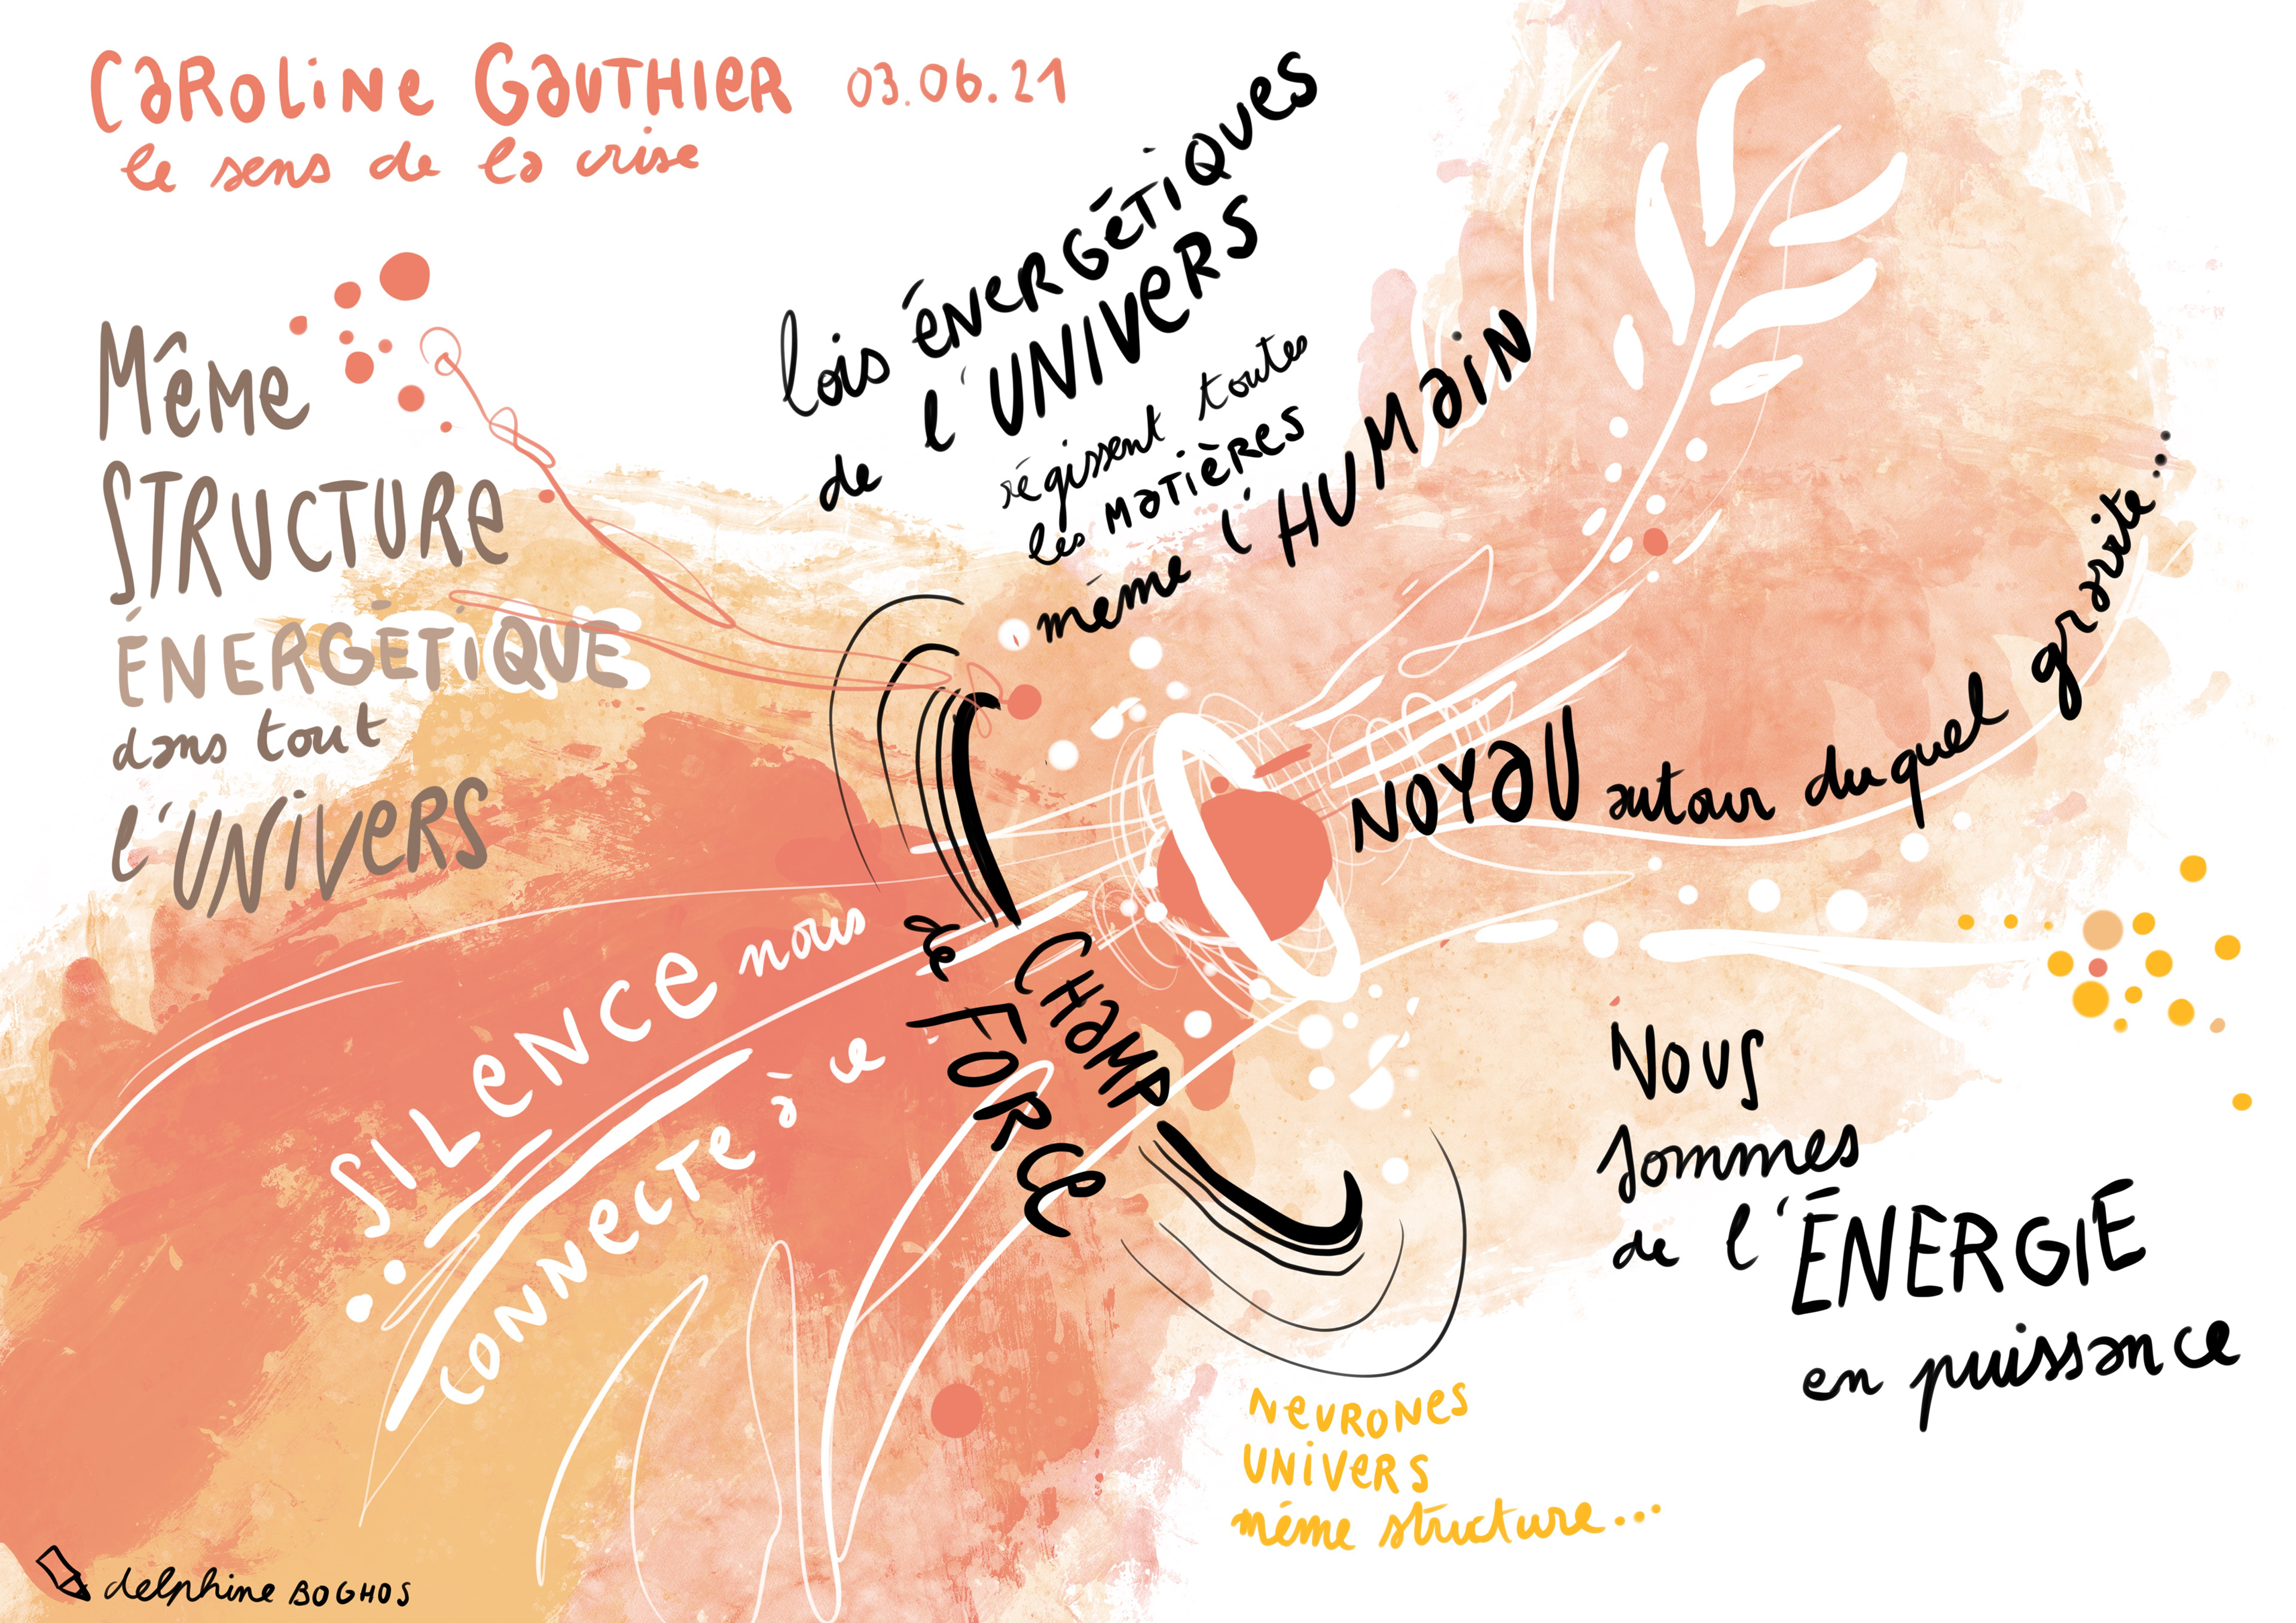 Caroline Gauthier 03.06.21
le sens de la crise
Même
structure
énergétique
dans tout
l'univers
lois énergétiques
de l'univers
régissent toutes
les matières
même l'humain
noyau autour duquel gravite...
silence nous
connecte à ce
champ
de force
Nous
sommes
de l'énergie
en puissance
neurones
univers
même structure...
delphine BOGHOS